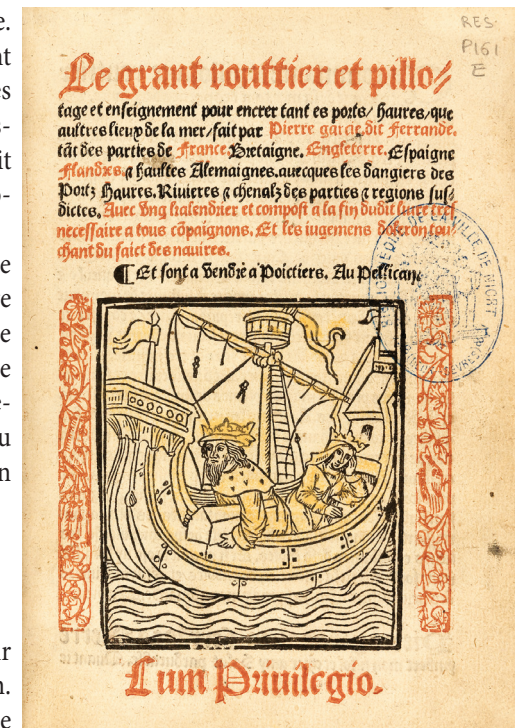 e.
nt
es
s-
it
o-
e
e
e
e
e-
u
n
ir
n.
e
RES
P161
E
Le grant routtier et pillo/
tage et enseignement pour encrer tant es ports/ haures/que
aultres lieux de la mer/fait par Pierre garcie dit Ferrande.
tãt des parties de France. Bretaigne. Engleterre. Espaigne
Flandres. ⁊ haultes Alemaignes. auecques les dangiers des
Portz Haures. Riuieres ⁊ chenalz des parties ⁊ regions sus/
dictes. Auec vng kalendrier et compost a la fin dudit liure tres
necessaire a tous cõpaignons. Et les iugemens doleron tou
chant du faict des nauires.
¶ Et sont a vendre a Poictiers. Au Pellican.
BIBLIOTHEQUE DE LA VILLE DE NIORT
Cum Priuilegio.